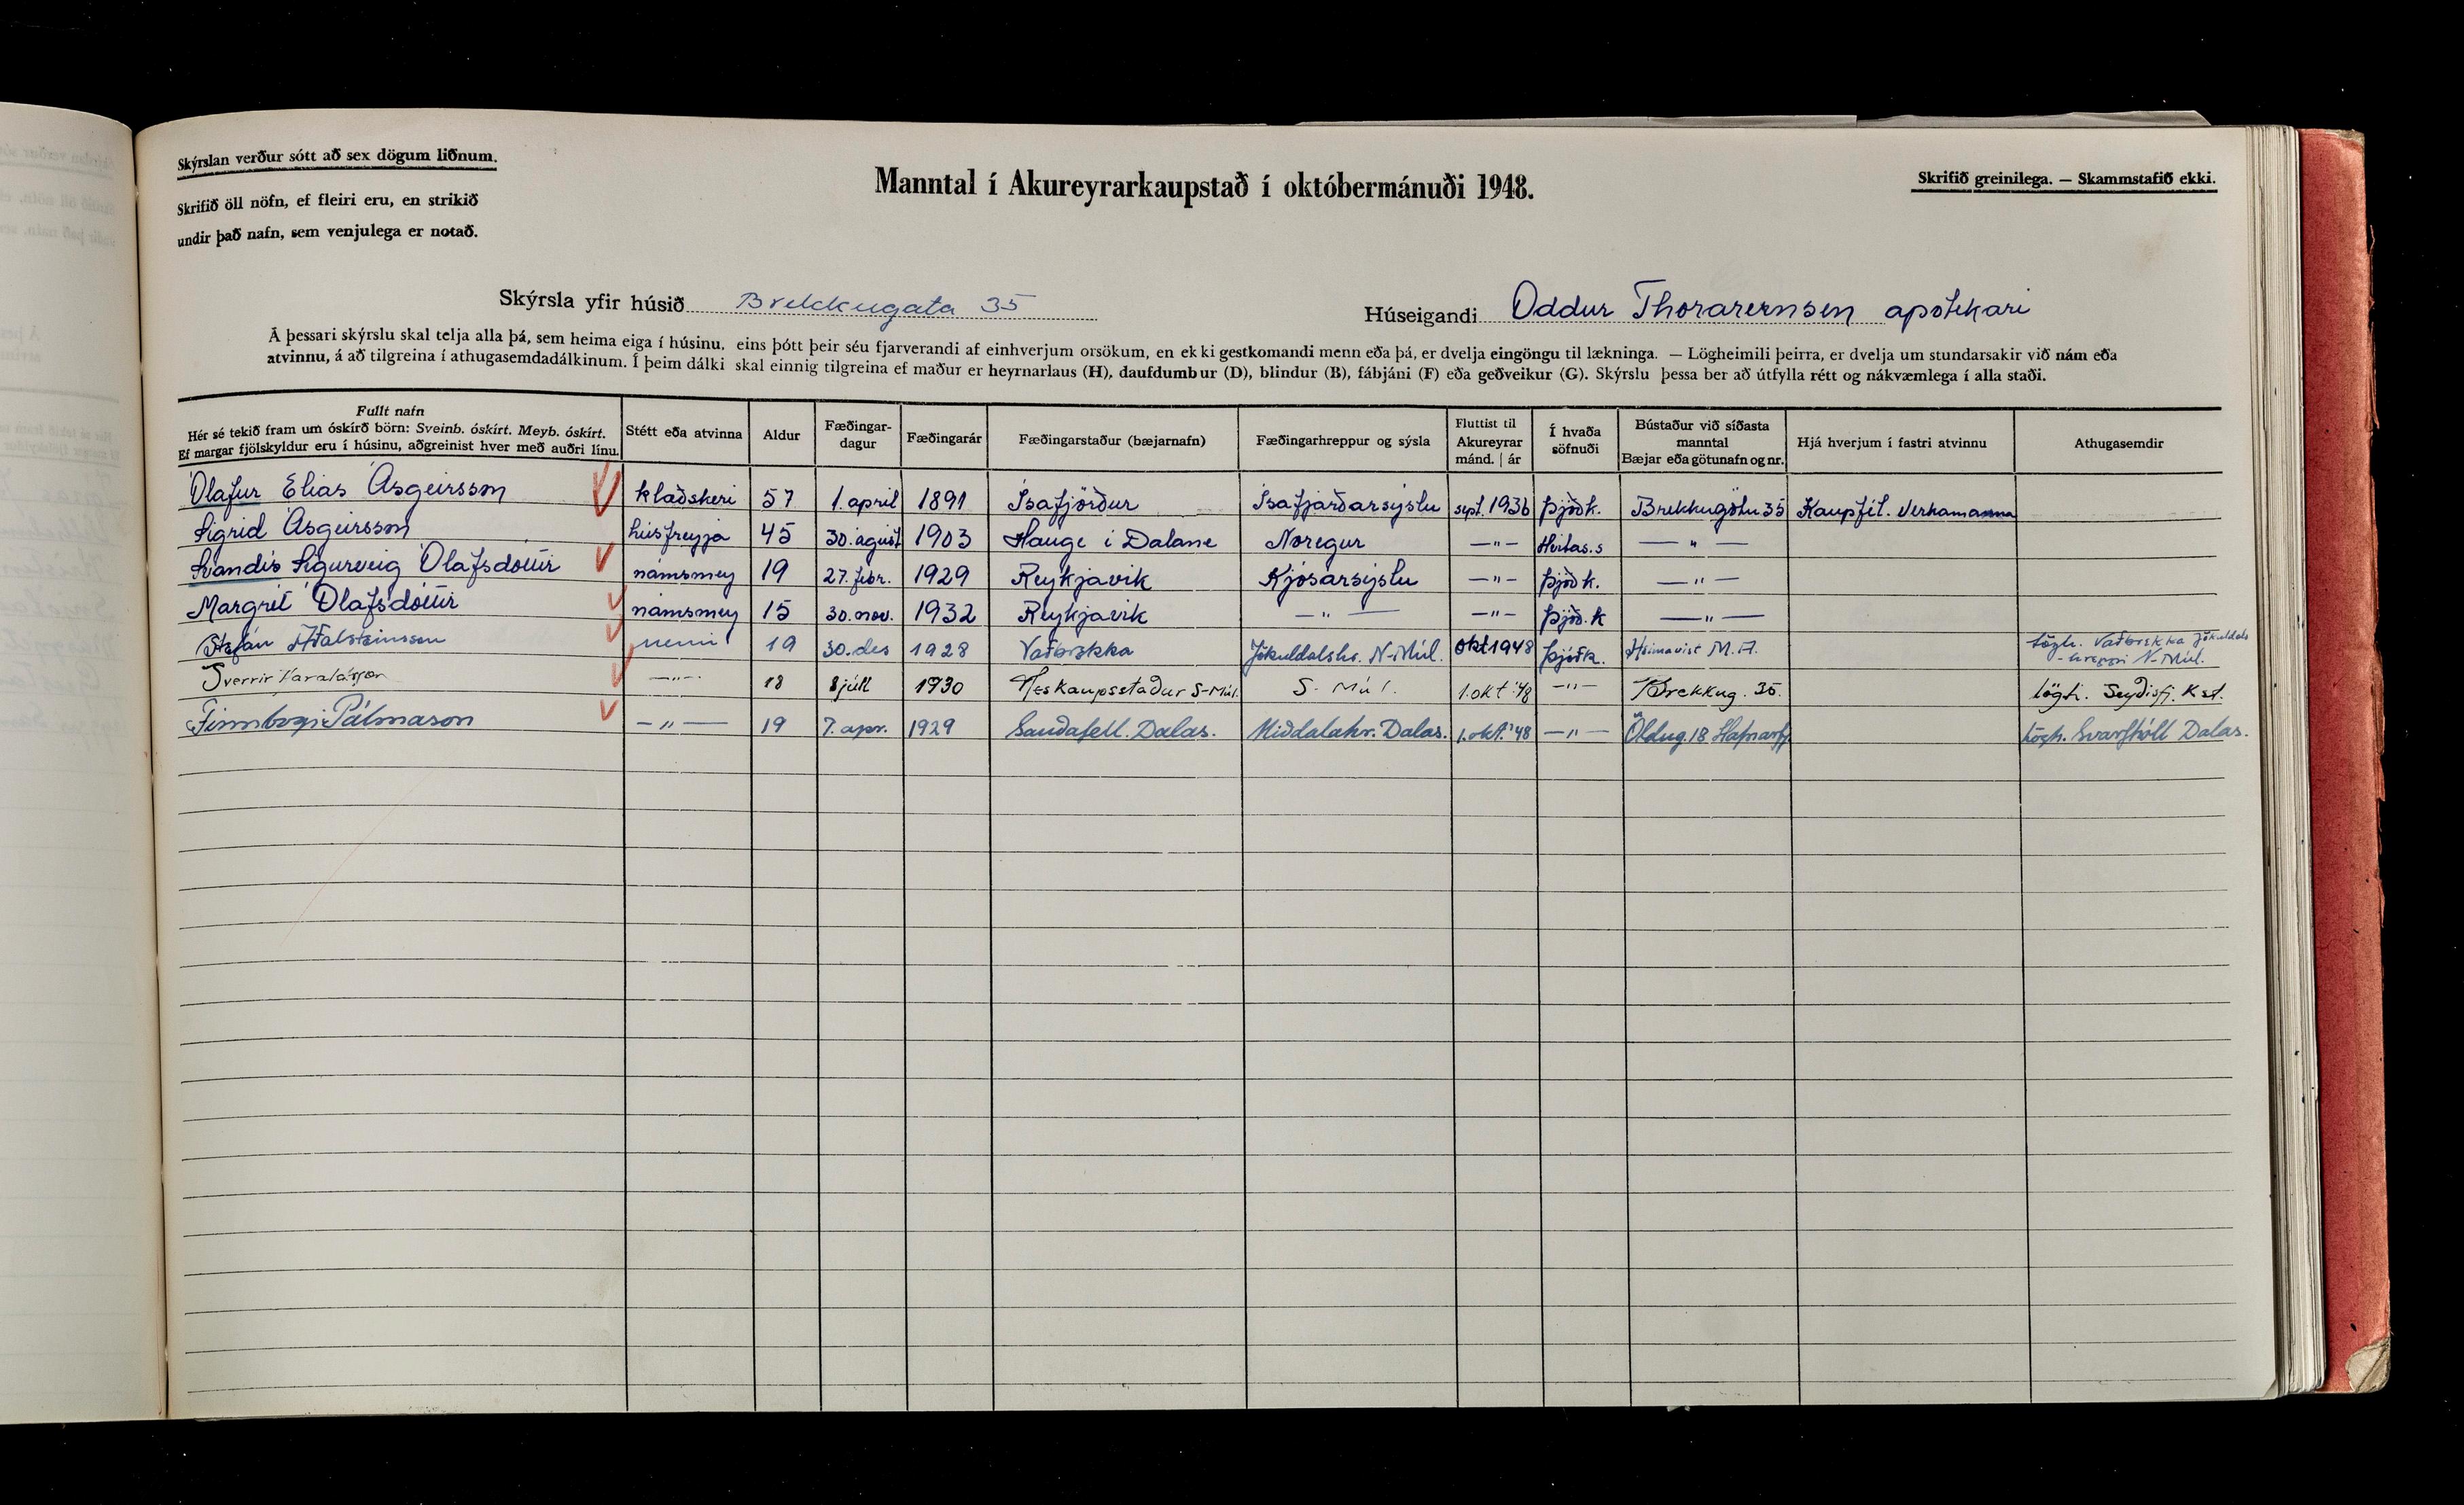 Skýrslan verður sótt að sex dögum liðnum.
Skrifið öll nöfn, ef fleiri eru, en strikið
undir það nafn, sem venjulega er notað.
Manntal í Akureyrarkaupstað í októbermánuði 1948.
Skrifið greinilega. — Skammstafið ekki.
Skýrsla yfir húsið Brekkugata 35
Húseigandi Oddur Thorarensen apótekari
Á þessari skýrslu skal telja alla þá, sem heima eiga í húsinu, eins þótt þeir séu fjarverandi af einhverjum orsökum, en ekki gestkomandi menn eða þá, er dvelja eingöngu til lækninga. — Lögheimili þeirra, er dvelja um stundarsakir við nám eða
atvinnu, á að tilgreina í athugasemdadálkinum. Í þeim dálki skal einnig tilgreina ef maður er heyrnarlaus (H), daufdumbur (D), blindur (B), fábjáni (F) eða geðveikur (G). Skýrslu þessa ber að útfylla rétt og nákvæmlega í alla staði.
Fullt nafn
Hér sé tekið fram um óskírð börn: Sveinb. óskírt. Meyb. óskírt.
Ef margar fjölskyldur eru í húsinu, aðgreinist hver með auðri línu.
Stétt eða atvinna
Aldur
Fæðingar-
dagur
Fæðingarár
Fæðingarstaður (bæjarnafn)
Fæðingarhreppur og sýsla
Fluttist til
Akureyrar
mánd. | ár
Í hvaða
söfnuði
Bústaður við síðasta
manntal
Bæjar eða götunafn og nr.
Hjá hverjum í fastri atvinnu
Athugasemdir
Ólafur Elías Ásgeirsson klæðskeri 57 1. apríl 1891 Ísafjörður Ísafjarðarsýslu sept. 1936 Þjóðk. Brekkugötu 35 Kaupfél. Verkamanna
Sigrid Ásgeirsson húsfreyja 45 30. ágúst 1903 Hauge i Dalane Noregur —"— Hvítas.s —"—
Svandís Sigurveig Ólafsdóttir námsmey 19 27. febr. 1929 Reykjavík Kjósarsýslu —"— Þjóðk. —"—
Margrét Ólafsdóttir námsmey 15 30. nov. 1932 Reykjavík —"— —"— Þjóð.k —"—
Stefán Aðalsteinsson nemi 19 30. des 1928 Vaðbrekka Jökuldalshr. N-Múl. Okt 1948 Þjóðk. Heimavist M.A. lögh. Vaðbrekka Jökuldals
-hreppi N-Múl.
Sverrir —"— 18 8 júlí 1930 Neskaupsstaður S-Múl. S-Múl. 1. okt '48 —"— Brekkug. 35. lögh. Seyðisfj. Kst.
Finnbogi Pálmason —"— 19 7. apr. 1929 Sauðafell. Dalas. Miðdalahr. Dalas. 1. okt. '48 —"— Öldug. 18 Hafnarfj lögh. Svarfhóll Dalas.